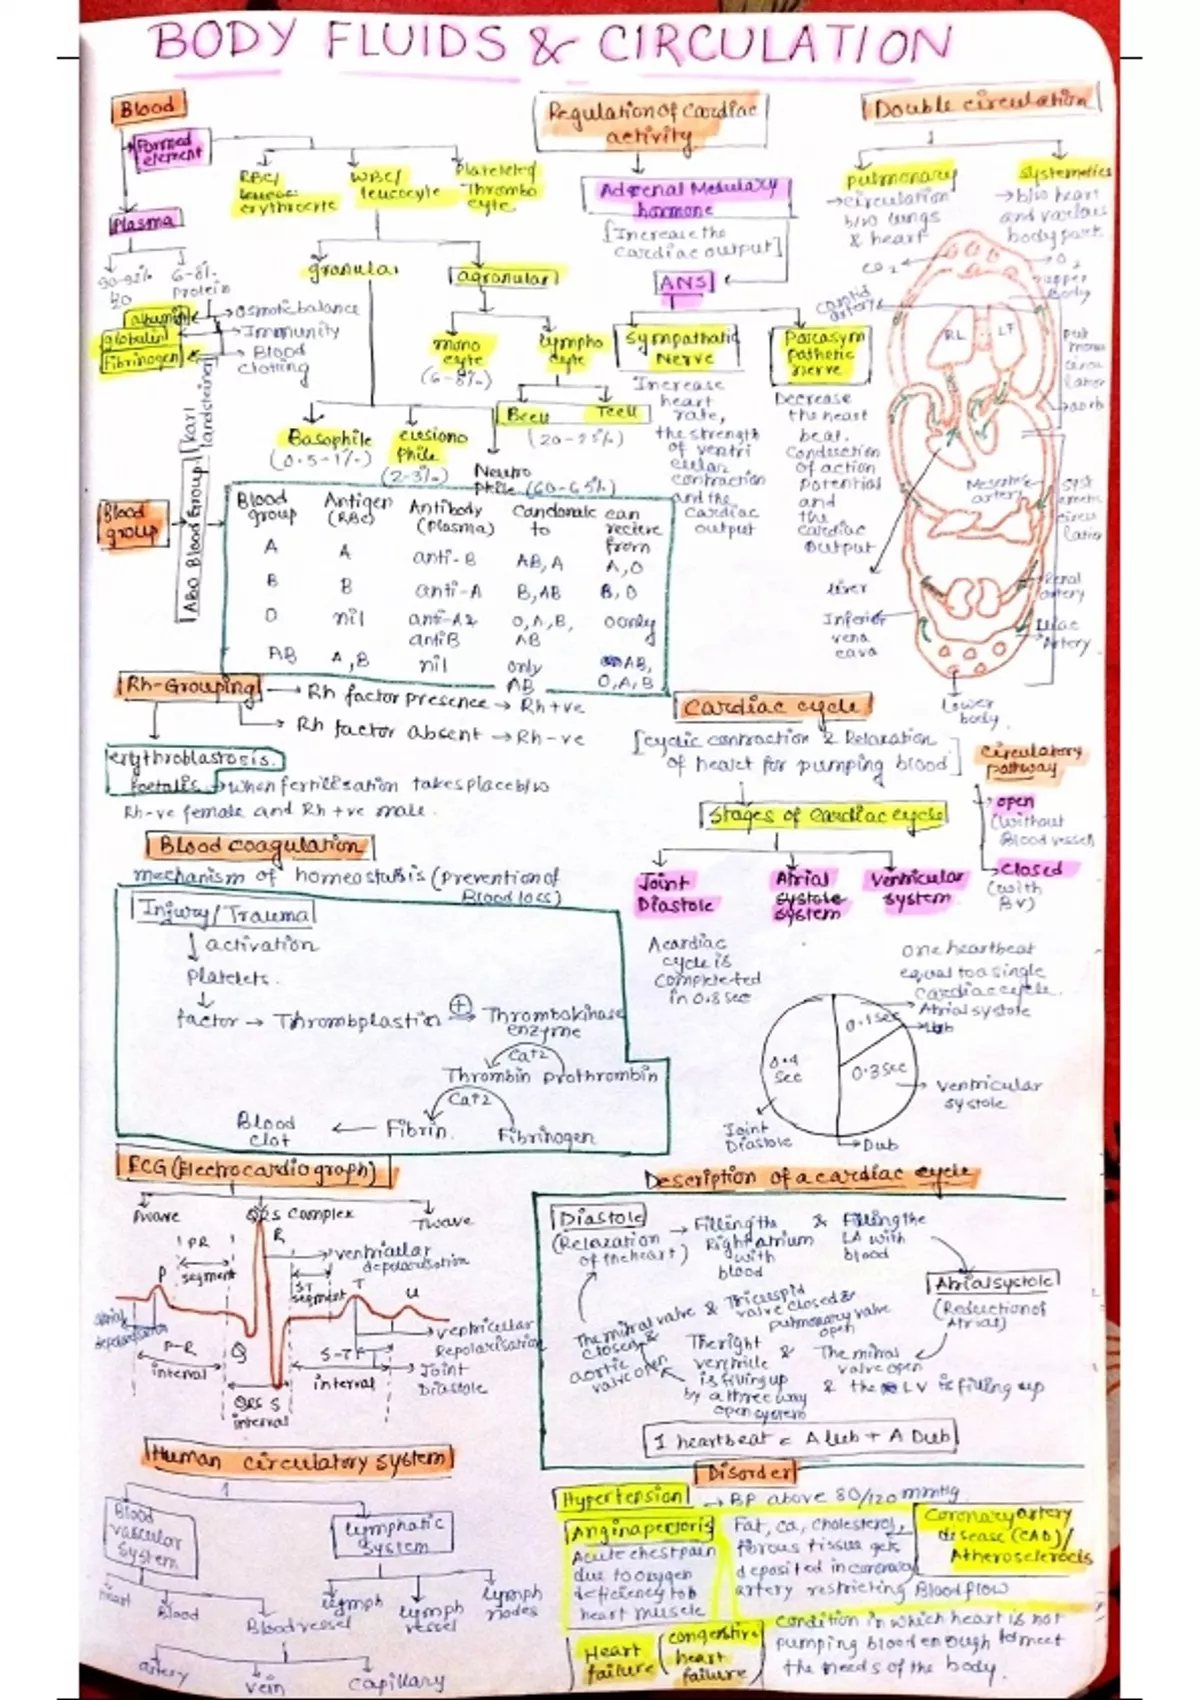 BODY FLUIDS & CIRCULATION
Blood
Formed
element
RBC/
erythrocyte
WBC/
leucocyte
Plateleted
Thrombo
cyte
Plasma
90-92%
6-8%
Protein
albumin
globulin
Fibrinogen
osmotic balance
Immunity
Blood
clotting
granular
agranular
mono
cyte
(6-8%)
lympho
cyte
Bcell
Tcell
(20-25%)
Basophile
(0.5-1%)
(2-3%)
Neutro
phile (60-65%)
Regulation of Cardiac
activity
Adrenal Medulary
hormone
[Increase the
cardiac output]
ANS
Sympathatic
Nerve
Increase
heart
rate,
the strength
of ventri
cular
contraction
and the
cardiac
output
Parasym
pathetic
nerve
Decrease
the heart
beat.
Conduction
of action
Potential
and
the
cardiac
output
Double circulation
pulmonary
→circulation
b/w lungs
& heart
systematics
→b/w heart
and various
body part
CO2
O2
upper
Body
carotid
artery
RL
LF
pul
mona
circu
lation
aorta
Mesentric
artery
syst
emetic
circu
lation
liver
Inferior
vena
cava
Renal
artery
Iliac
Artery
Lower
body
Blood
group
ABO Blood Group
[Karl
landsteiner]
Blood
group
Antigen
(RBC)
Antibody
(plasma)
Candonate
to
can
recieve
from
A
A
anti-B
AB, A
A, O
B
B
anti-A
B, AB
B, O
O
nil
anti-A &
anti B
O, A, B,
AB
O only
AB
A, B
nil
only
AB
AB,
O, A, B
Rh-Grouping
Rh factor presence → Rh+ve
Rh factor absent → Rh-ve
erythroblastosis
foetalis → when fertilisation takes place b/w
Rh-ve female and Rh +ve male.
Blood coagulation
mechanism of homeostasis (prevention of
Blood loss)
Injury/Trauma
↓ activation
Platelets.
factor → Thrombplastin
+
Thrombokinase
enzyme
Ca+2
Thrombin prothrombin
Ca+2
Blood
clot
← Fibrin.
Fibrinogen
Cardiac cycle
[cyclic contraction & Relaxation
of heart for pumping blood]
Stages of cardiac cycle
Joint
Diastole
Atrial
system
Ventricular
system
Circulatory
pathway
open
(without
Blood vessel)
closed
(with
BV)
A cardiac
cycle is
completed
in 0.8 sec
one heartbeat
equal to a single
cardiac cycle.
Atrial systole
0.1 sec
0.4
sec
0.3 sec
ventricular
systole
Joint
Diastole
Dub
ECG (Electrocardiograph)
Pwave
QRS Complex
Twave
PR
segment
R
P
ventricular
depolarisation
ST
segment
T
U
atrial
depolarisation
P-R
interval
Q
S-T
interval
ventricular
Repolarisation
Joint
Diastole
QRS S
interval
Description of a cardiac cycle
Diastole
(Relaxation
of the heart)
→ Filling the
Right atrium
with
blood
&
Filling the
LA with
blood
Atrial systole
(Reduction of
Atria)
The mitral
valve open
& the LV is filling up
The right
ventricle
is filling up
by a three way
open system
&
The mitral valve & Tricuspid
valve closed &
pulmonary valve
open
closed &
aortic
valve open
1 heartbeat = A Lub + A Dub
Human circulatory system
Blood
vascular
system
lymphatic
system
Heart
Blood
Blood vessel
lymph
lymph
vessel
lymph
nodes
artery
vein
Capillary
Disorder
Hypertension
→ BP above 80/120 mmHg
Angina pectoris
Acute chest pain
due to oxygen
deficiency to
heart muscle
Fat, Ca, cholesterol,
fibrous tissue gets
deposited in coronary
artery restricting Blood flow
Coronary artery
disease (CAD)/
Atherosclerosis
Heart
failure
(congestive
heart
failure)
Condition in which heart is not
pumping blood enough to meet
the needs of the body.